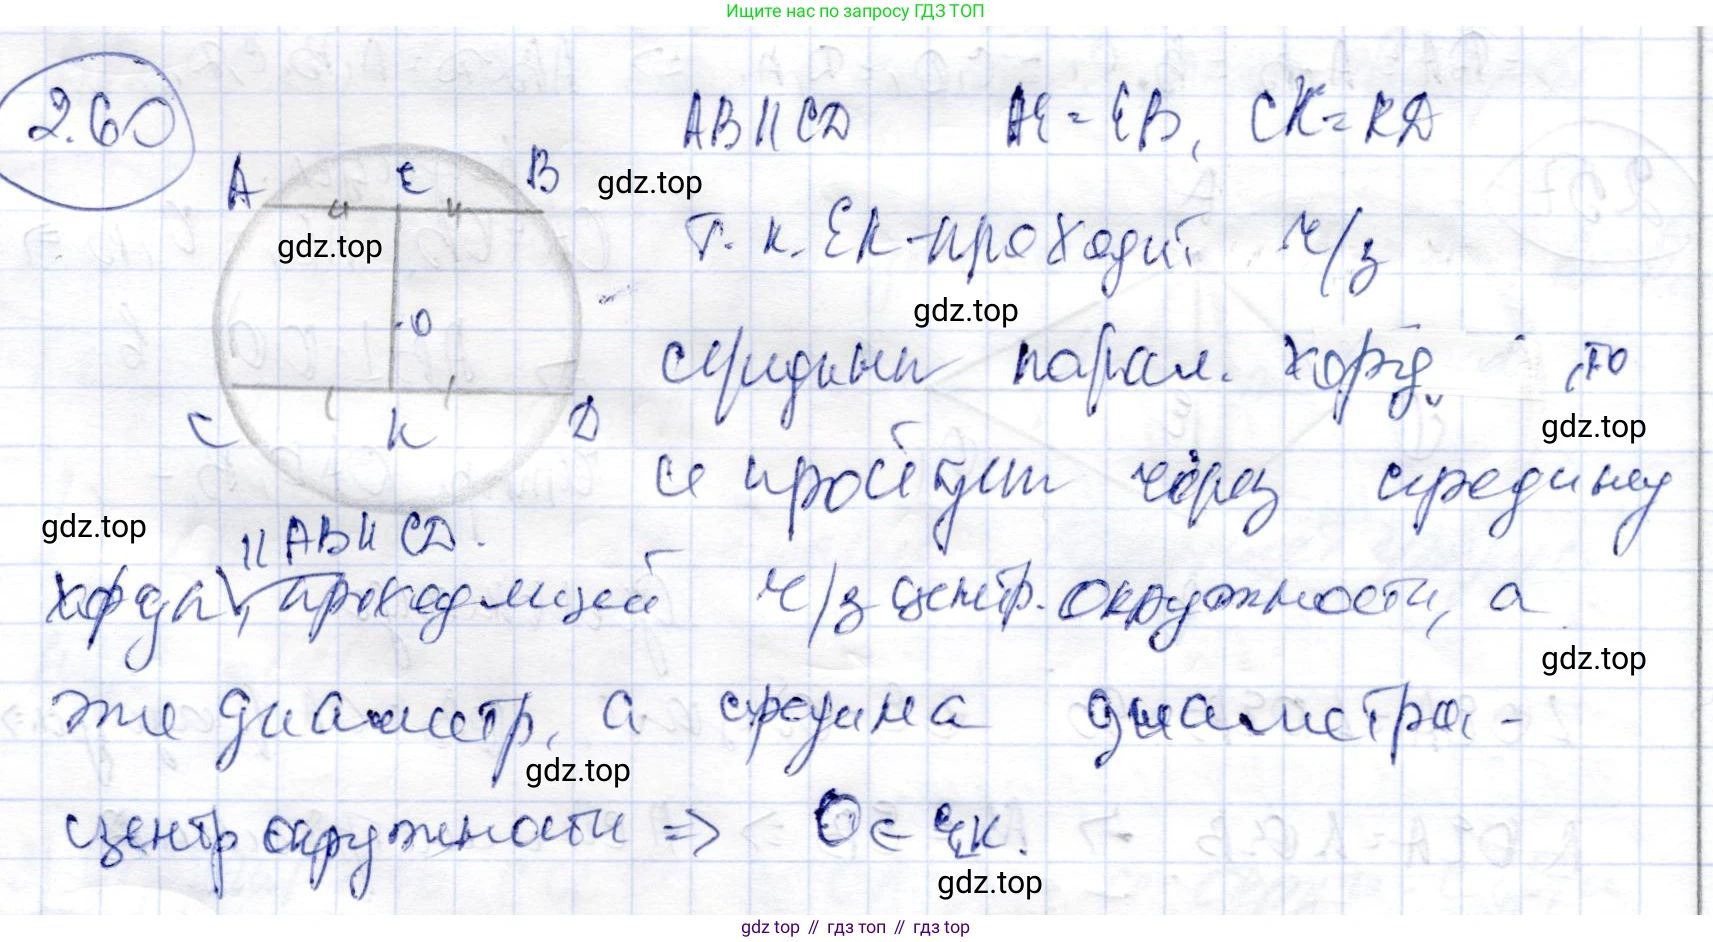 Ищите нас по запросу ГДЗ ТОП
2.60
AB || CD AE = EB, CK = KD
A E B
gdz.top
gdz.top
Т. к. EK - проходит ч/з
O
gdz.top
середины парал. хорд, то
C K D
gdz.top
и пройдет через середину
gdz.top
|| AB и CD.
хорды, проходящей ч/з центр. окружности, а
gdz.top
это диаметр, а середина диаметра -
gdz.top
центр окружности => O ∈ EK.
gdz.top
gdz top // гдз топ // гдз top